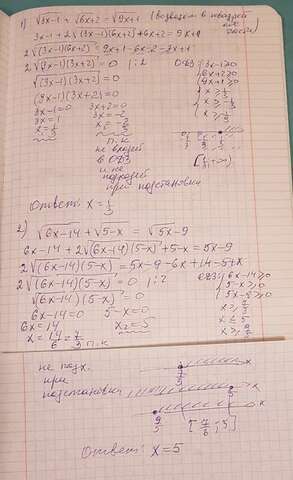 1) √3x-1 + √6x+2 = √9x+1 (возводем в квадрат обе части)
3x-1 + 2√(3x-1)(6x+2) + 6x+2 = 9x+1
2√(3x-1)(6x+2) = 9x+1-6x-2-3x+1
2√(3x-1)(3x+2) = 0 | :2
√(3x-1)(3x+2) = 0
(3x-1)(3x+2) = 0
3x-1=0 3x+2=0
3x=1 3x=-2
x=1/3 x=-2/3
П.К
не входит
в ОДЗ
и не
подходит
при подстановки
ОДЗ: 3x-1≥0
6x+2≥0
9x+1≥0
x≥1/3
x≥-1/3
x≥-1/9
[1/3;+∞)
Ответ: x=1/3
2) √6x-14 + √5-x = √5x-9
6x-14 + 2√(6x-14)(5-x) + 5-x = 5x-9
2√(6x-14)(5-x) = 5x-9-6x+14-5+x
2√(6x-14)(5-x) = 0 | :2
√(6x-14)(5-x) = 0
6x-14=0 5-x=0
6x=14 x₂=5
x=14/6=7/3 П.К
ОДЗ: 6x-14≥0
5-x≥0
5x-9≥0
x≤5
не подх.
при
подстановки
[7/6;5]
Ответ: x=5